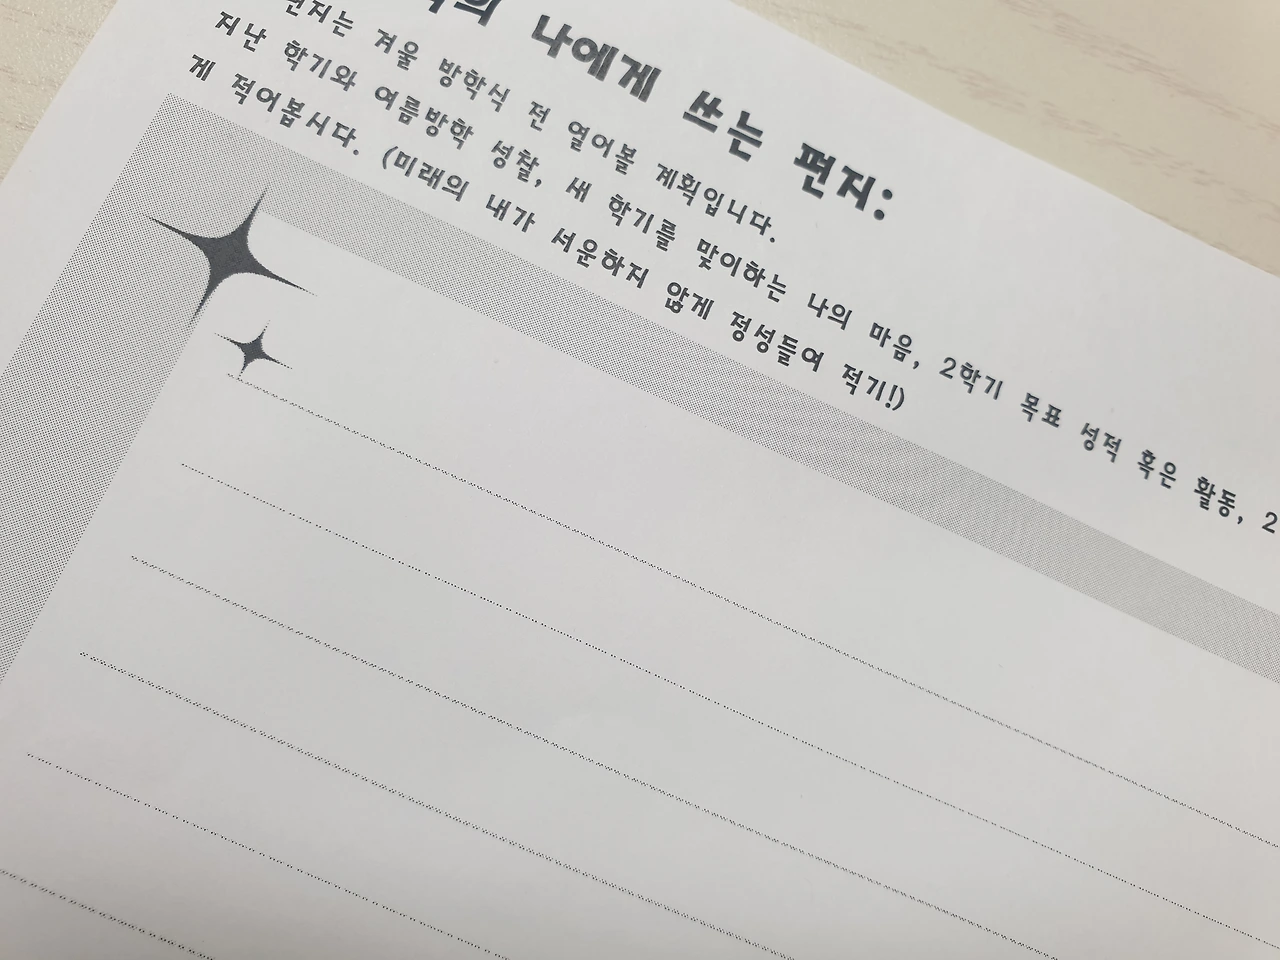 나에게 쓰는 편지:
편지는 겨울 방학식 전 열어볼 계획입니다.
지난 학기와 여름방학 성찰, 새 학기를 맞이하는 나의 마음, 2학기 목표 성적 혹은 활동, 2
게 적어봅시다. (미래의 내가 서운하지 않게 정성들여 적기!)